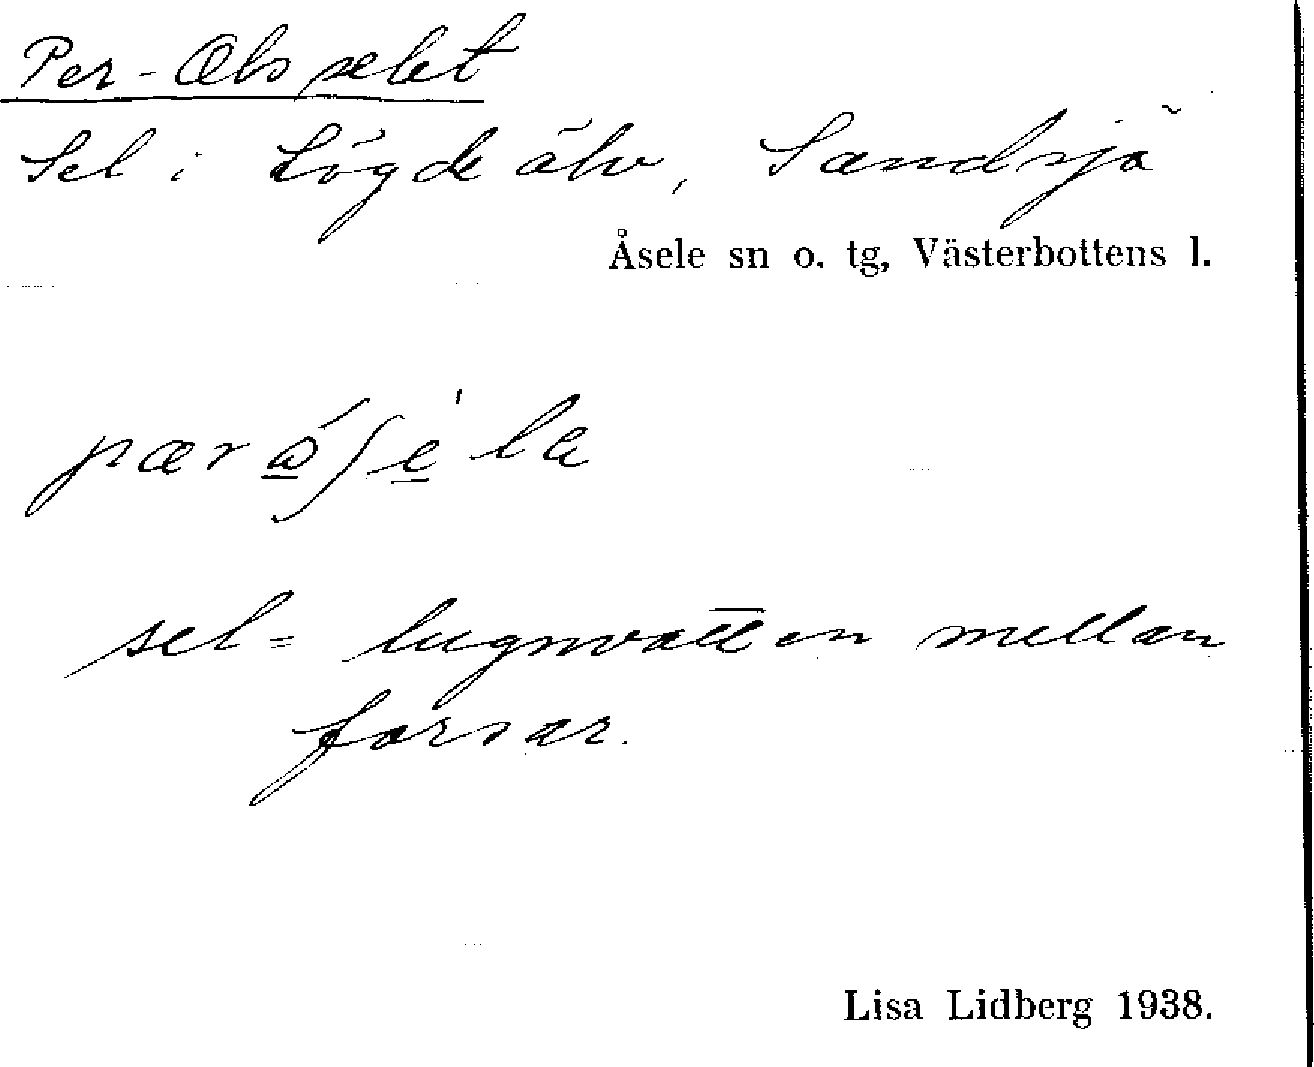 Per-Olsselet
Sel i Lögde älv, Sandsjö
Åsele sn o. tg, Västerbottens l.
sel = lugnvatten mellan
forsar.
Lisa Lidberg 1938.